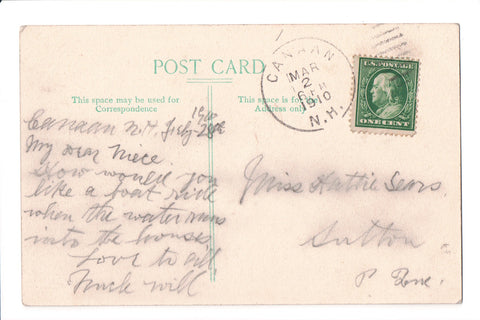 POST CARD
This space may be used for
Correspondence
This space is for
Address only
CANAAN
MAR
2
1910
N.H.
U.S. POSTAGE
ONE CENT
1910
Canaan N.H. Feb 28
My dear Niece.
How would you
like a boat ride
when the water runs
into the houses
Love to all
Uncle Will
Miss Hattie Sears.
Sutton
P. Que.